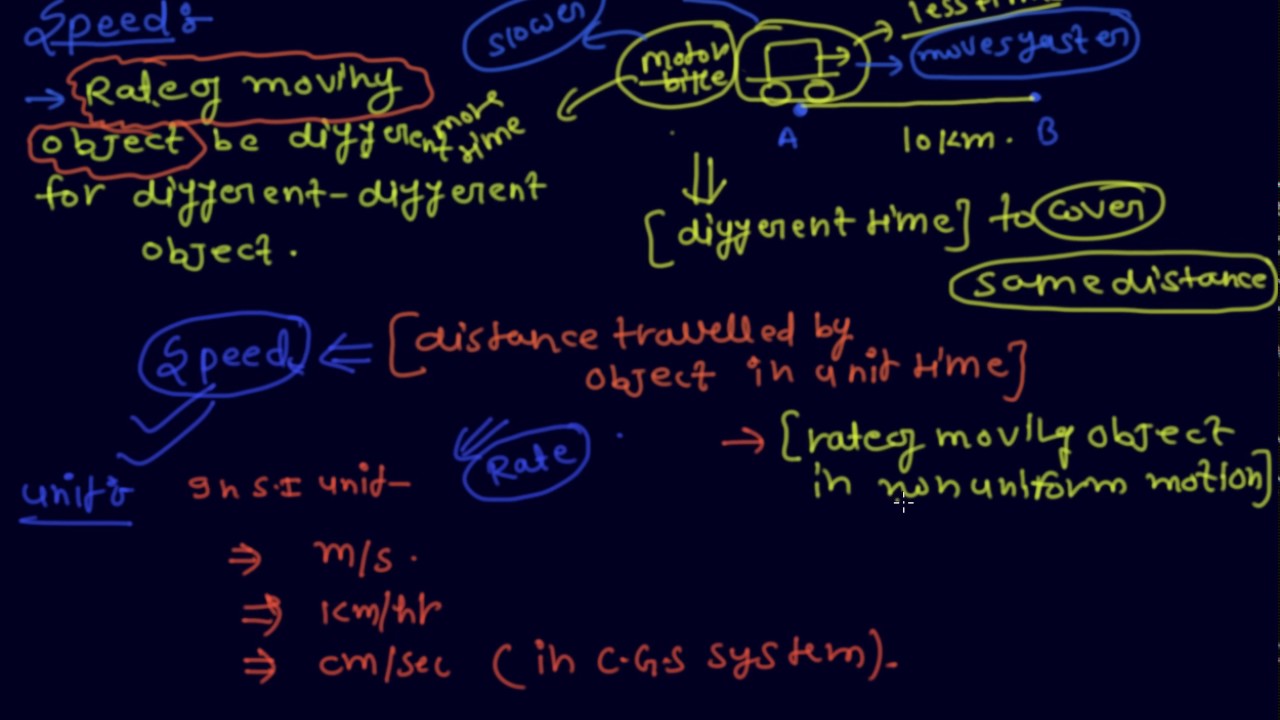 Speed:
→ Rate of moving
object be different
for different-different
object.
more
time
slower
motor
bike
less time
moves faster
A
10 Km.
B
[different time] to cover
same distance
Speed ⇐ [distance travelled by
object in unit time]
Rate
→ [rate of moving object
in non uniform motion]
unit:
In S.I unit-
⇒ m/s.
⇒ Km/hr
⇒ cm/sec (in C.G.S system).